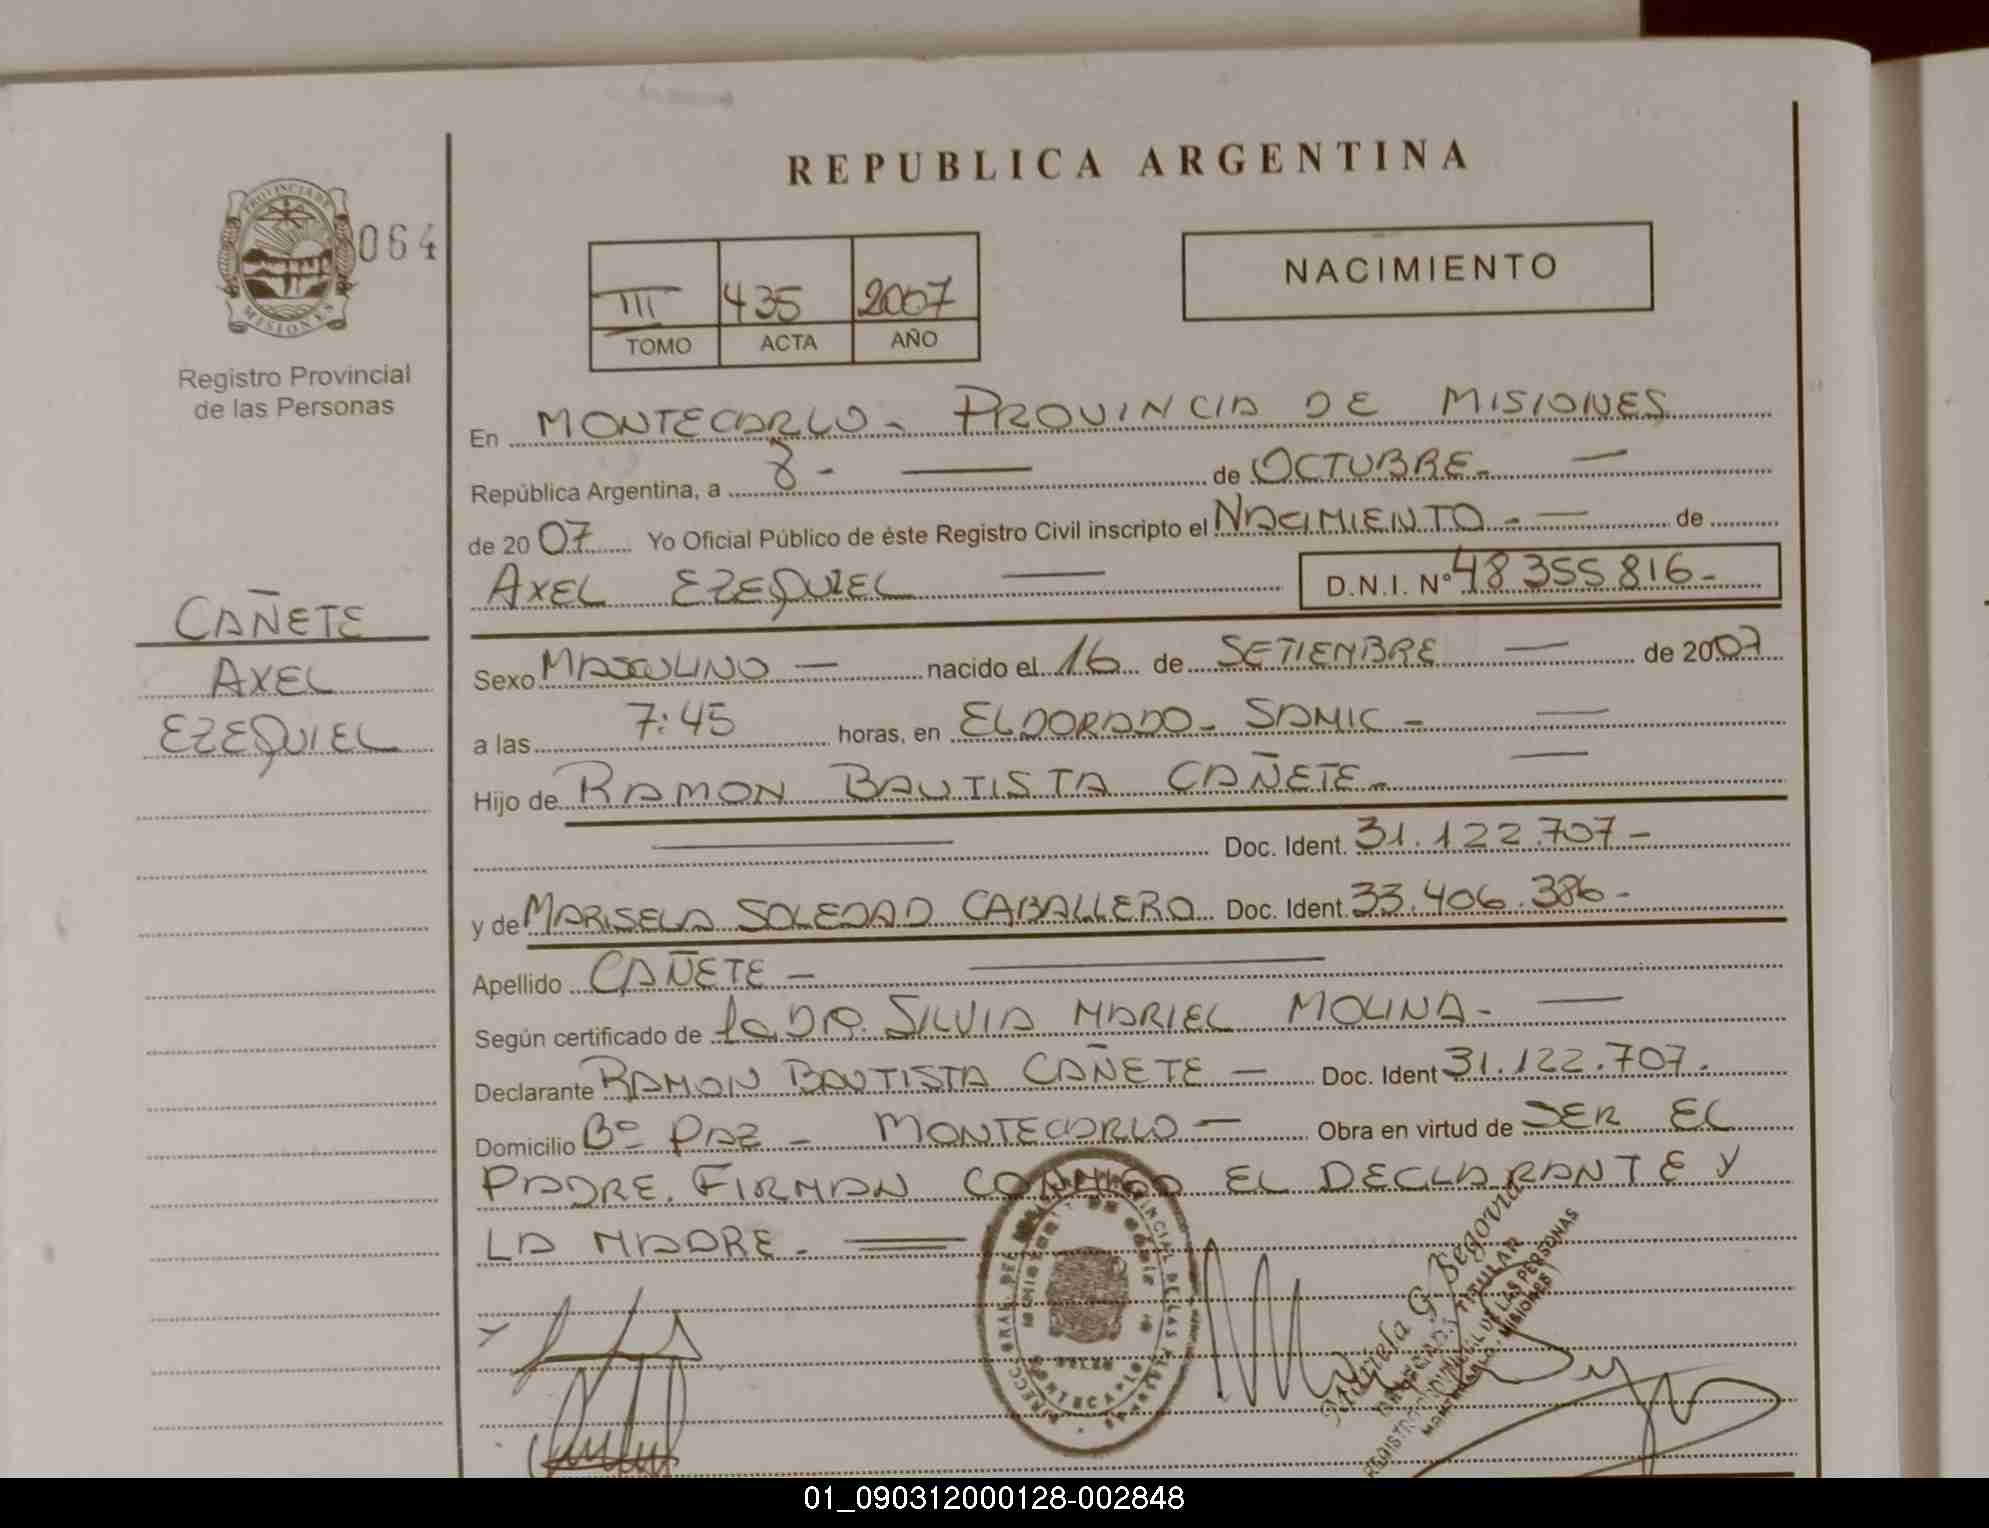 REPUBLICA ARGENTINA
PROVINCIA DE MISIONES
064
Registro Provincial
de las Personas
III 435 2007
TOMO ACTA AÑO
NACIMIENTO
En MONTECARLO - PROVINCIA DE MISIONES
República Argentina, a 8 - de OCTUBRE -
de 2007 Yo Oficial Público de éste Registro Civil inscripto el NACIMIENTO - de
AXEL EZEQUIEL D.N.I. Nº 48355816 -
CAÑETE
AXEL
EZEQUIEL
Sexo MASCULINO - nacido el 16 de SETIEMBRE - de 2007
a las 7:45 horas, en ELDORADO - SAMIC -
Hijo de RAMON BAUTISTA CAÑETE -
Doc. Ident. 31.122.707 -
y de MARISELA SOLEDAD CABALLERO Doc. Ident. 33.406.386 -
Apellido CAÑETE -
Según certificado de la DRA. SILVIA MARIEL MOLINA -
Declarante RAMON BAUTISTA CAÑETE - Doc. Ident 31.122.707.
Domicilio Bº PAZ - MONTECARLO - Obra en virtud de SER EL
PADRE. FIRMAN CONMIGO EL DECLARANTE Y
LA MADRE -
Mariela G. Segovia
TITULAR
REGISTRO PROVINCIAL DE LAS PERSONAS
MONTECARLO - MISIONES
01_090312000128-002848